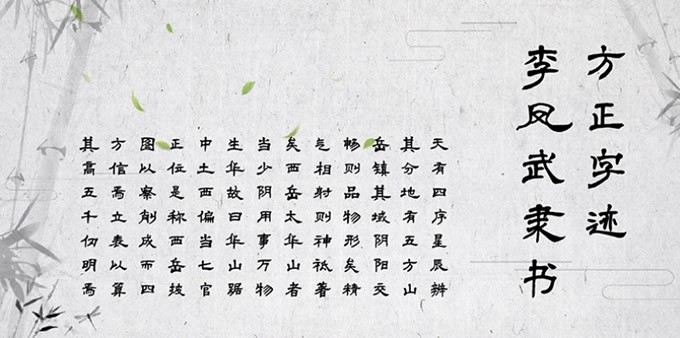 方正字迹
李凤武隶书
天有四序星辰辨
其分地有五方山
岳镇其域阴阳交
畅则品物形矣精
气相射则神祇著
矣西岳太华山者
当少阴用事万物
生华故曰华山踞
中土西偏当七官
正位是称西岳拔
图以察削成而四
方信焉立表以算
其高五千仞明焉